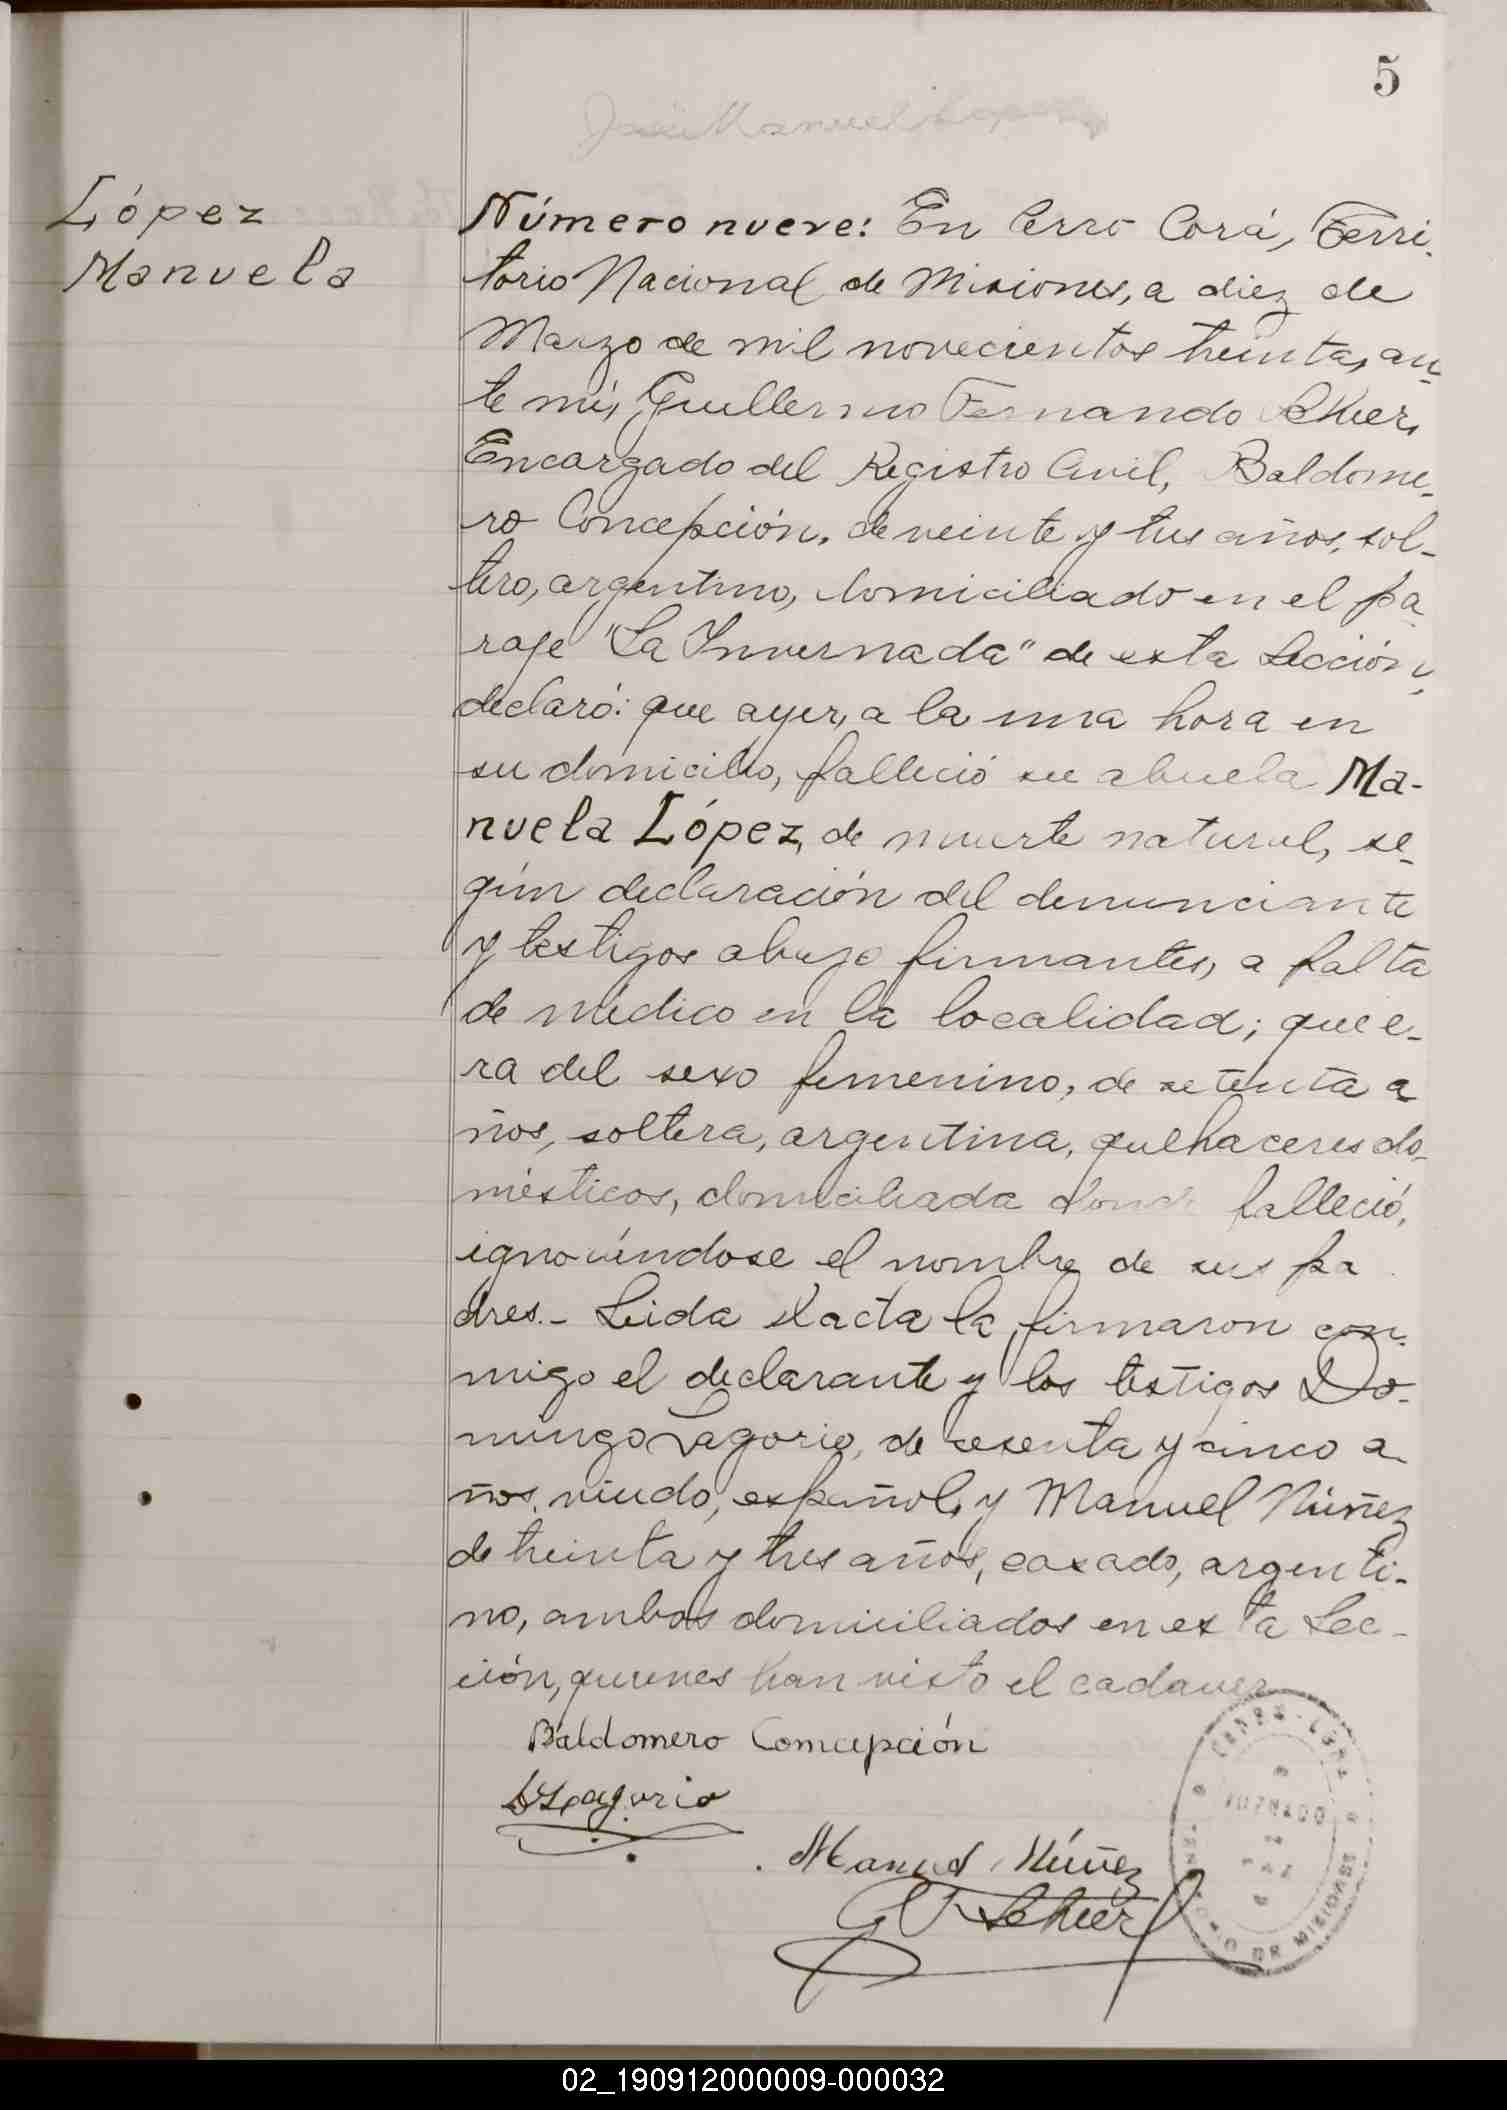 5
José Manuel Lopez
López
Manuela
Número nueve: En Cerro Corá, Terri-
torio Nacional de Misiones, a diez de
Marzo de mil novecientos treinta, an-
te mi, Guillermo Fernando
Encargado del Registro Civil, Baldome-
ro Concepción, de veinte y tres años, sol-
tero, argentino, domiciliado en el pa
raje "La Invernada" de esta Sección,
declaró: que ayer, a la una hora en
su domicilio, falleció su abuela Ma-
nuela López, de muerte natural, se-
gún declaración del denunciante
y testigos abajo firmantes, a falta
de médico en la localidad; que e-
ra del sexo femenino, de setenta a
ños, soltera, argentina, quehaceres do-
mésticos, domiciliada donde falleció,
ignorándose el nombre de sus pa
dres.- Leida el acta la firmaron con-
migo el declarante y los testigos Do-
mingo Lagorio, de sesenta y cinco a
ños, viudo, español, y Manuel Núñez
de treinta y tres años, casado, argenti-
no, ambos domiciliados en esta Sec-
ción, quienes han visto el cadaver
Baldomero Concepción
Lagorio
Manuel Núñez
DE MISIONES
02_190912000009-000032